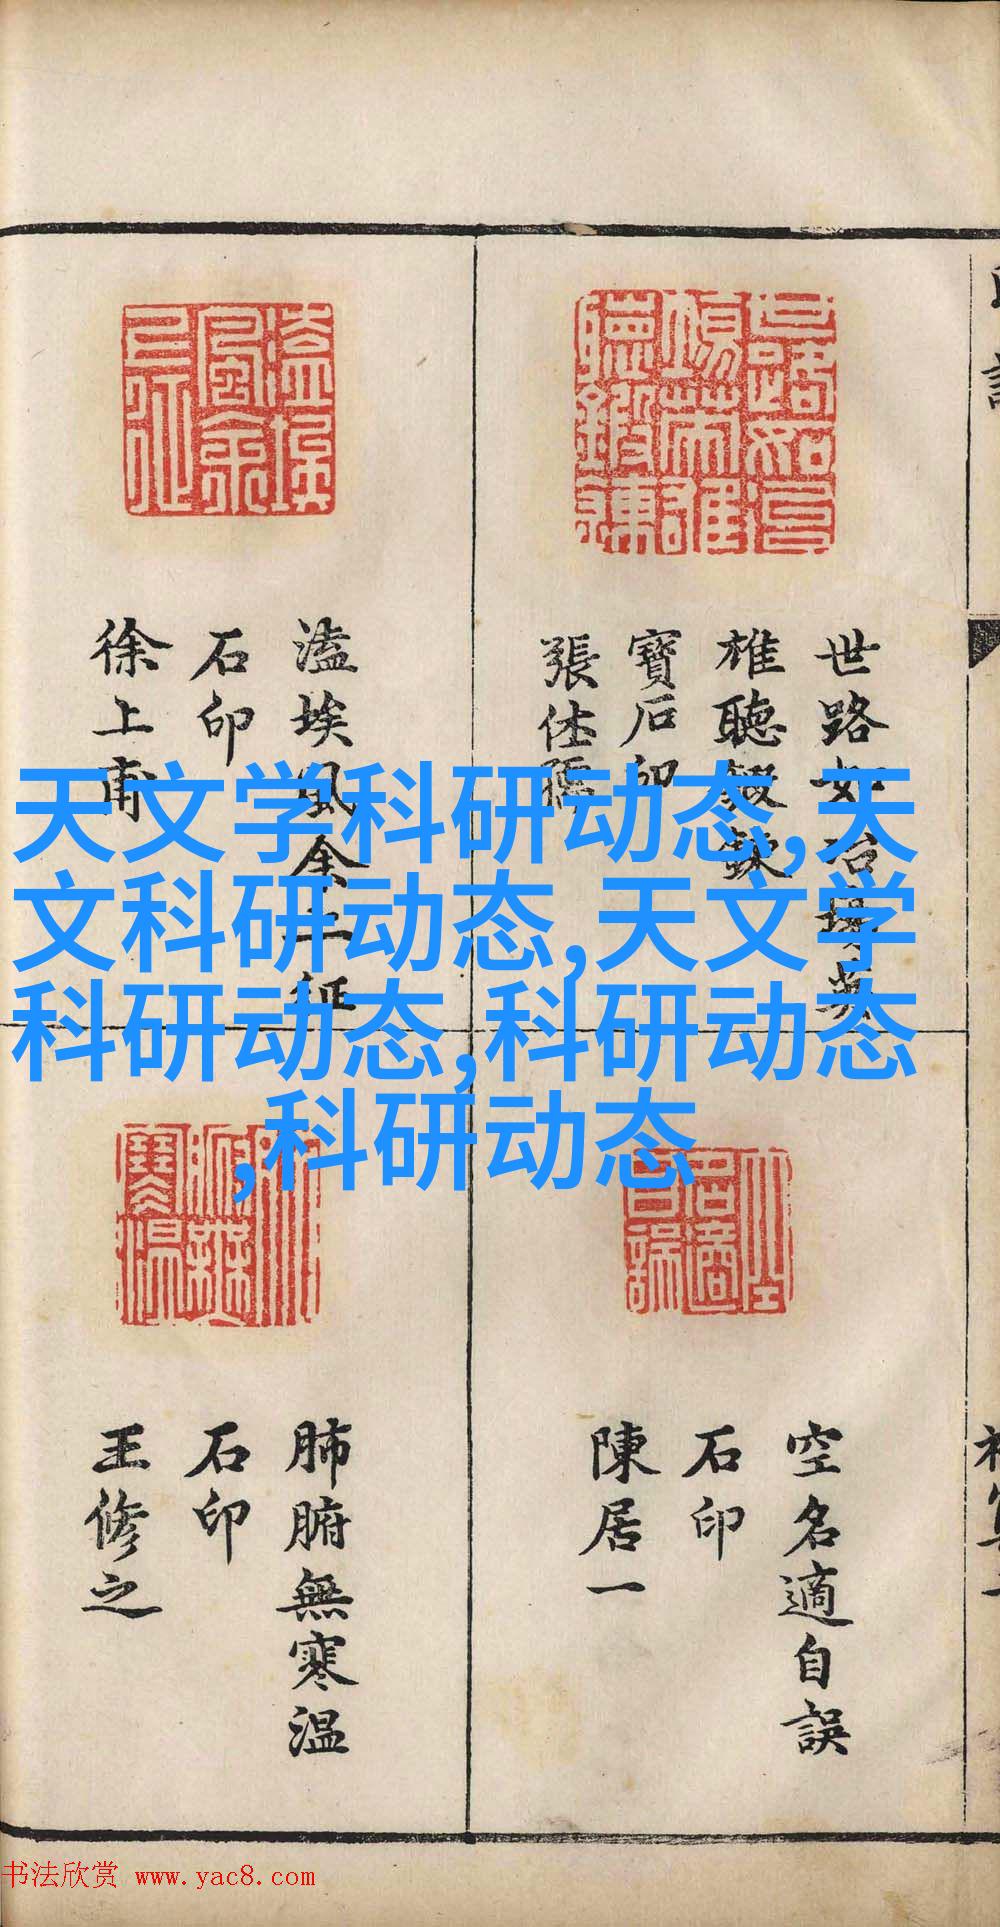 世路如冶場英
雄聽鍛鍊
寶石印
張
溘埃風余上征
石印
徐上甫
天文学科研动态,天
文科研动态,天文学
科研动态,科研动态
,科研动态
空名適自誤
石印
陳居一
肺腑無寒温
石印
王修之
书法欣赏 www.yac8.com